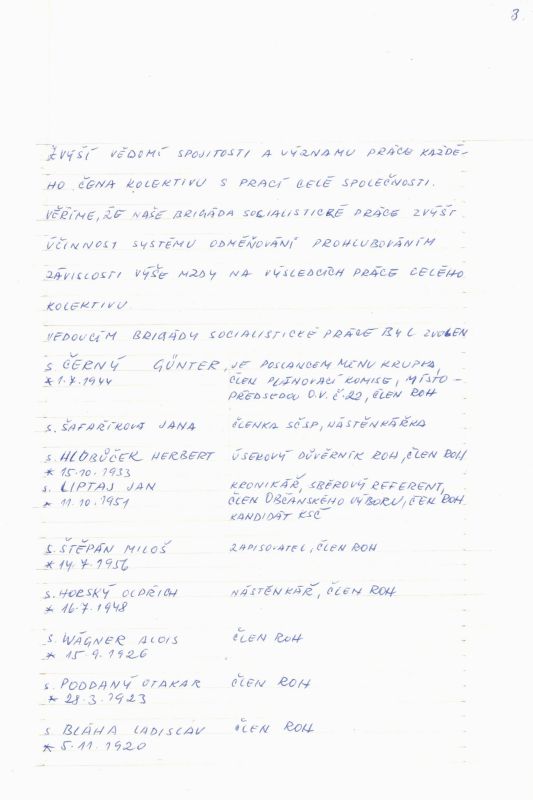 3.
ZVÝŠÍ VĚDOMÍ SPOJITOSTI A VÝZNAMU PRÁCE KAŽDÉ-
HO ČENA KOLEKTIVU S PRACÍ CELÉ SPOLEČNOSTI.
VĚŘÍME, ŽE NAŠE BRIGÁDA SOCIALISTICKÉ PRÁCE ZVÝŠÍ
ÚČINNOST SYSTÉMU ODMĚŇOVÁNÍ PROHLUBOVÁNÍM
ZÁVISLOSTI VÝŠE MZDY NA VÝSLEDCÍCH PRÁCE CELÉHO
KOLEKTIVU.
VEDOUCÍM BRIGÁDY SOCIALISTICKÉ PRÁCE BYL ZVOLEN
S ČERNÝ GÜNTER, JE POSLANCEM MĚNV KRUPKA,
* 1.7.1944 ČLEN PLÁNOVACÍ KOMISE, MÍSTO-
PŘEDSEDOU O.V. Č.22, ČLEN ROH
S. ŠAFAŘÍKOVÁ JANA ČLENKA SČSP, NÁSTĚNKÁŘKA
S. HLOBŮČEK HERBERT ÚSEKOVÝ DŮVĚRNÍK ROH, ČLEN ROH
* 15.10.1933
S. LIPTAJ JAN KRONIKÁŘ, SBĚROVÝ REFERENT,
* 11.10.1951 ČLEN OBČANSKÉHO VÝBORU, ČEN ROH
KANDIDÁT KSČ
S. ŠTĚPÁN MILOŠ ZAPISOVATEL, ČLEN ROH
* 14.7.1956
S. HORSKÝ OLDŘICH NÁSTĚNKÁŘ, ČLEN ROH
* 16.7.1948
S. WÁGNER ALOIS ČLEN ROH
* 15.9.1926
S. PODDANÝ OTAKAR ČLEN ROH
* 28.3.1923
S. BLÁHA LADISLAV ČLEN ROH
* 5.11.1920